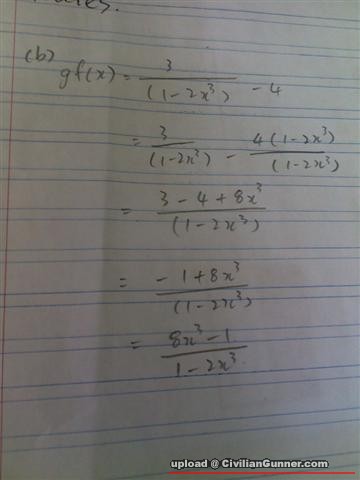 rates.
(b) gf(x) = 3/(1-2x³) - 4
= 3/(1-2x³) - 4(1-2x³)/(1-2x³)
= (3 - 4 + 8x³)/(1-2x³)
= (-1+8x³)/(1-2x³)
= (8x³-1)/(1-2x³)
upload @ CivilianGunner.com